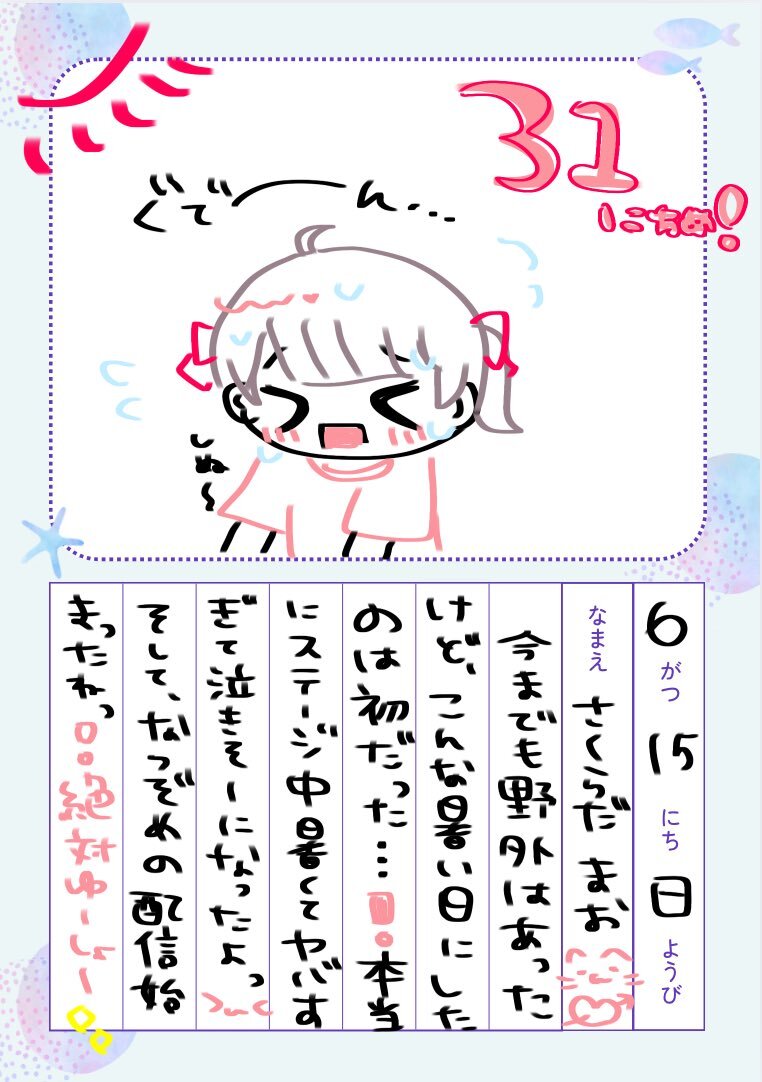 31
にちめ!
ぐでーん…
しぬ〜
6がつ15にち日ようび
なまえ さくらだ まお
今までも野外はあった
けど、こんな暑い日にした
のは初だった…!!本当
にステージ中暑くてヤバす
ぎて泣きそーになったよっ
そして、なつぞめの配信始
まったねっ!!絶対ゆーしょー